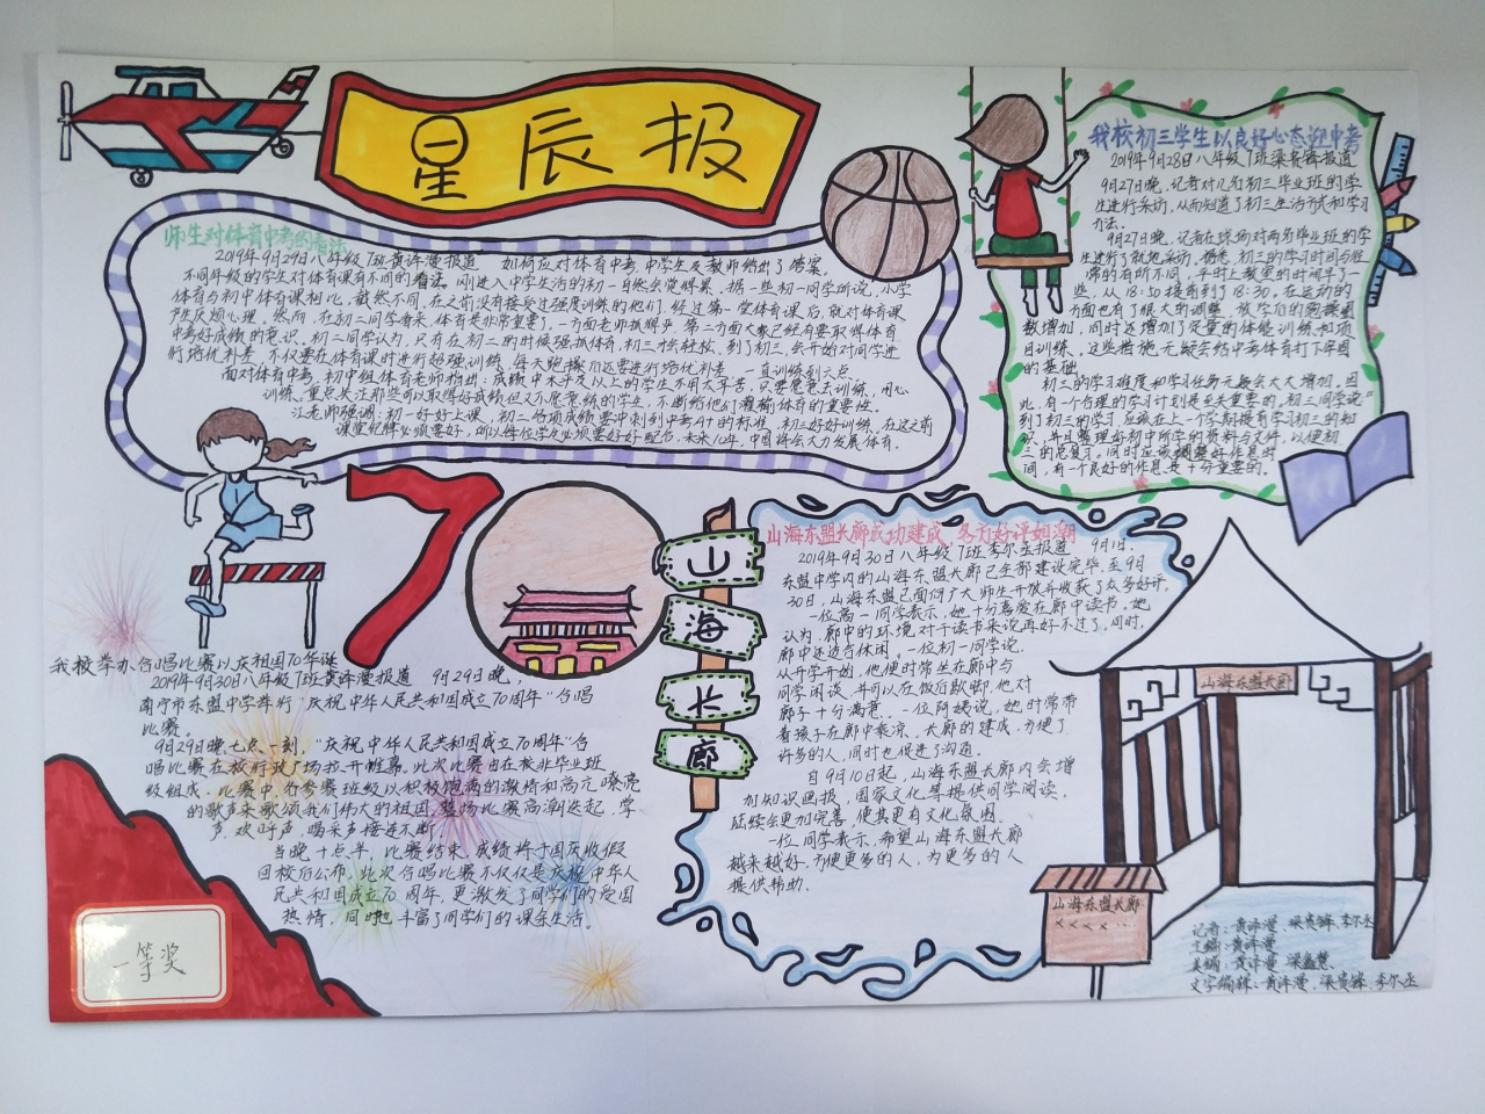 星辰报
师生对体育中考的看法
2019年9月29日八年级7班黄泽漫报道 如何应对体育中考,中学生及教师给出了答案。
不同年级的学生对体育课有不同的看法。刚进入中学生活的初一自然会觉得累。据一些初一同学所说,小学
体育与初中体育课相比,截然不同,在之前没有接受过强度训练的他们,经过第一堂体育课后,就对体育课
产生厌烦心理。然而,在初二同学看来,体育是非常重要了,一方面老师抓得严,第二方面大家已经有要取得体育
中考好成绩的意识。初二同学认为,只有在初二的时候强抓体育,初三才会轻松。到了初三,会开始对同学进
行培优补差,不仅要在体育课时进行超强训练,每天跑操后还要进行培优补差,一直训练到六点。
面对体育中考,初中组体育老师指出:成绩中水平及以上的学生不用太辛苦,只要愿意去训练,用心
训练。重点关注那些可以取得好成绩但又不愿意练的学生,不断给他们灌输体育的重要性。
江老师强调:初一好好上课,初二各项成绩要冲刺到中考A+的标准,初三好好训练。在这之前
课堂纪律必须要好,所以每位学生必须要好好配合,未来10年,中国将会大力发展体育。
我校初三学生以良好心态迎中考
2019年9月28日八年级7班梁贵锋报道
9月27日晚,记者对几名初三毕业班的学
生进行采访,从而知道了初三生活方式和学习
办法。
9月27日晚,记者在球场对两名毕业班的学
生进行了就地采访。据悉,初三的学习时间与往
常的有所不同,平时上教室的时间早了一
些,从18:50提前到了18:30。在运动的
方面也有了很大的调整,放学后的跑操圈
数增加,同时还增加了定量的体能训练和项
目训练。这些措施无疑会给中考体育打下牢固
的基础
初三的学习难度和学习任务无疑会大大增加。因
此,有一个合理的学习计划是至关重要的。初三同学说"
到了初三的学习,应该在上一个学期提前学习初三的知
识,并且整理好初中所学的资料与文件,以便初
三的总复习。同时应该调整好作息时
间,有一个良好的作息是十分重要的。
70
我校举办合唱比赛以庆祖国70华诞
2019年9月30日八年级7班黄泽漫报道 9月29日晚,
南宁市东盟中学举行"庆祝中华人民共和国成立70周年"合唱
比赛。
9月29日晚七点一刻,"庆祝中华人民共和国成立70周年"合
唱比赛在校行政广场拉开帷幕。此次比赛由在校非毕业班
级组成,比赛中,各参赛班级以积极饱满的激情和高亢嘹亮
的歌声来歌颂我们伟大的祖国。整场比赛高潮迭起,掌
声,欢呼声,喝采声接连不断。
当晚十点半,比赛结束,成绩将于国庆收假
回校后公布。此次合唱比赛不仅仅是庆祝中华人
民共和国成立70周年,更激发了同学们的爱国
热情,同时也丰富了同学们的课余生活。
一等奖
山海长廊
山海东盟长廊成功建成,各方好评如潮
2019年9月30日八年级7班李尔丞报道 9月1日,
东盟中学内的山海东盟长廊已全部建设完毕,至9月
30日,山海东盟已面向广大师生开放并收获了众多好评。
一位高一同学表示,她十分喜爱在廊中读书。她
认为,廊中的环境对于读书来说再好不过了,同时,
廊中还适合休闲。一位初一同学说,
从开学开始,他便时常坐在廊中与
同学闲谈,并可以在饭后歇脚,他对
廊子十分满意。一位阿姨说,她时常带
着孩子在廊中乘凉。长廊的建成,方便了
许多的人,同时也促进了沟通。
自9月10日起,山海东盟长廊内会增
加知识画报,国家文化等提供同学阅读,
延续会更加完善,使其更有文化氛围。
一位同学表示,希望山海东盟长廊
越来越好,方便更多的人,为更多的人
提供帮助。
山海东盟长廊
山海东盟长廊
记者:黄泽漫、梁贵锋、李尔丞
主编:黄泽漫
美编:黄泽漫、梁
文字编辑:黄泽漫、梁贵锋、李尔丞